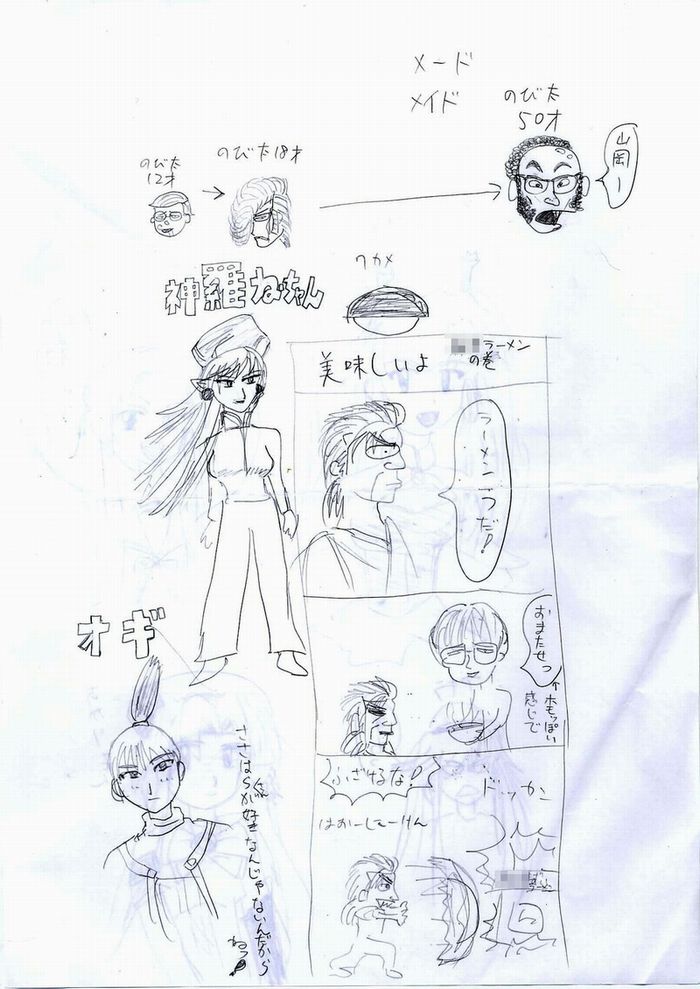 メード
メイド
のび太
50才
山岡ー
のび太18才
のび太
12才
ワカメ
神羅ねぇちゃん
美味しいよ
ラーメン
の巻
ラーメン一つだ!
おまたせっ
↑ホモっぽい
感じで
オギ
ささはらくんが好きなんじゃないんだから
ねっ
ふざけるな!
はおーしょーけん
ドッカン